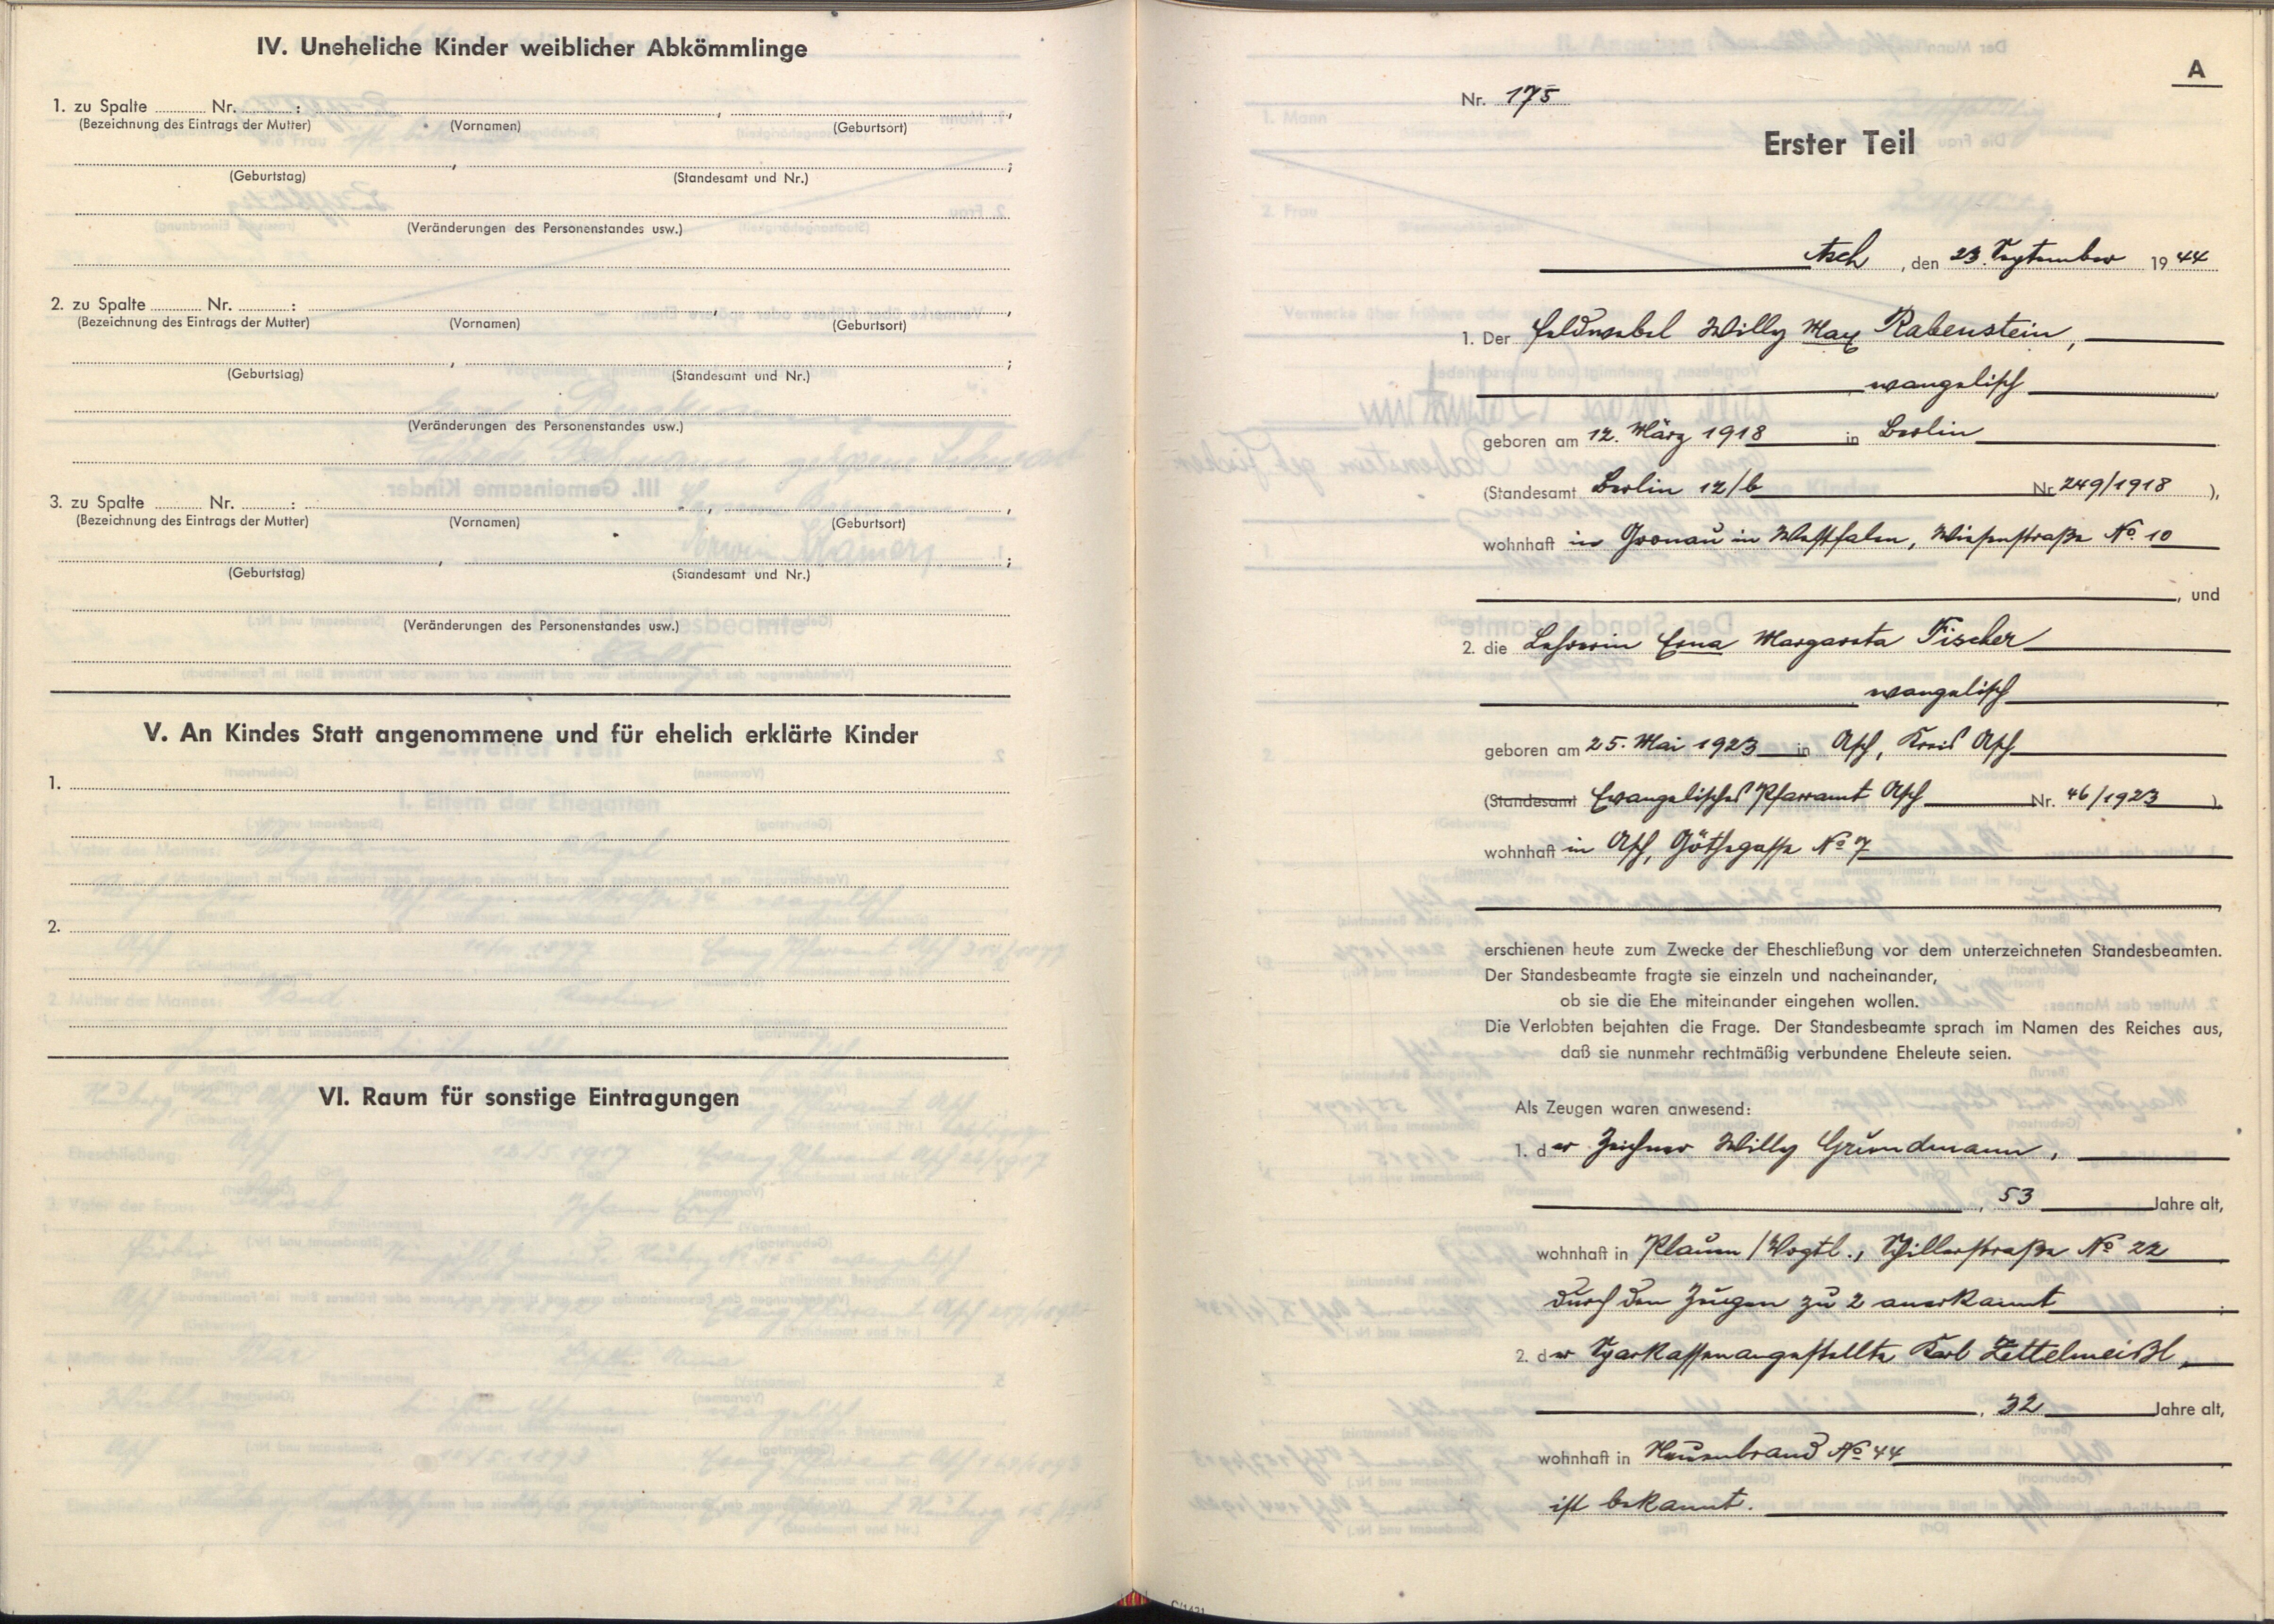 IV. Uneheliche Kinder weiblicher Abkömmlinge
1. zu Spalte Nr. : , ,
(Bezeichnung des Eintrags der Mutter) (Vornamen) (Geburtsort)
, ;
(Geburtstag) (Standesamt und Nr.)
(Veränderungen des Personenstandes usw.)
2. zu Spalte Nr. : , ,
(Bezeichnung des Eintrags der Mutter) (Vornamen) (Geburtsort)
, ;
(Geburtstag) (Standesamt und Nr.)
(Veränderungen des Personenstandes usw.)
3. zu Spalte Nr. : , ,
(Bezeichnung des Eintrags der Mutter) (Vornamen) (Geburtsort)
, ;
(Geburtstag) (Standesamt und Nr.)
(Veränderungen des Personenstandes usw.)
V. An Kindes Statt angenommene und für ehelich erklärte Kinder
1.
2.
VI. Raum für sonstige Eintragungen
A
Nr. 175
Erster Teil
Asch, den 23. September 1944
1. Der Feldwebel Willy Max Rabenstein,
evangelisch
geboren am 12. März 1918 in Berlin
(Standesamt Berlin 12/b Nr 249/1918 ),
wohnhaft in Gronau in Westfalen, Wiesenstraße No. 10
, und
2. die Lehrerin Erna Margareta Fischer
evangelisch
geboren am 25. Mai 1923 in Asch, Kreis Asch
(Standesamt Evangelisches Pfarramt Asch Nr. 46/1923 ),
wohnhaft in Asch, Göthegasse No 7
erschienen heute zum Zwecke der Eheschließung vor dem unterzeichneten Standesbeamten.
Der Standesbeamte fragte sie einzeln und nacheinander,
ob sie die Ehe miteinander eingehen wollen.
Die Verlobten bejahten die Frage. Der Standesbeamte sprach im Namen des Reiches aus,
daß sie nunmehr rechtmäßig verbundene Eheleute seien.
Als Zeugen waren anwesend:
1. der Zeichner Willy Grundmann,
, 53 Jahre alt,
wohnhaft in Plauen / Vogtl., Schillerstraße No 22
durch den Zeugen zu 2 anerkannt ;
2. der Sparkassenangestellte Karl Zettelmeißl,
, 32 Jahre alt,
wohnhaft in Neuenbrand No 44
ist bekannt.